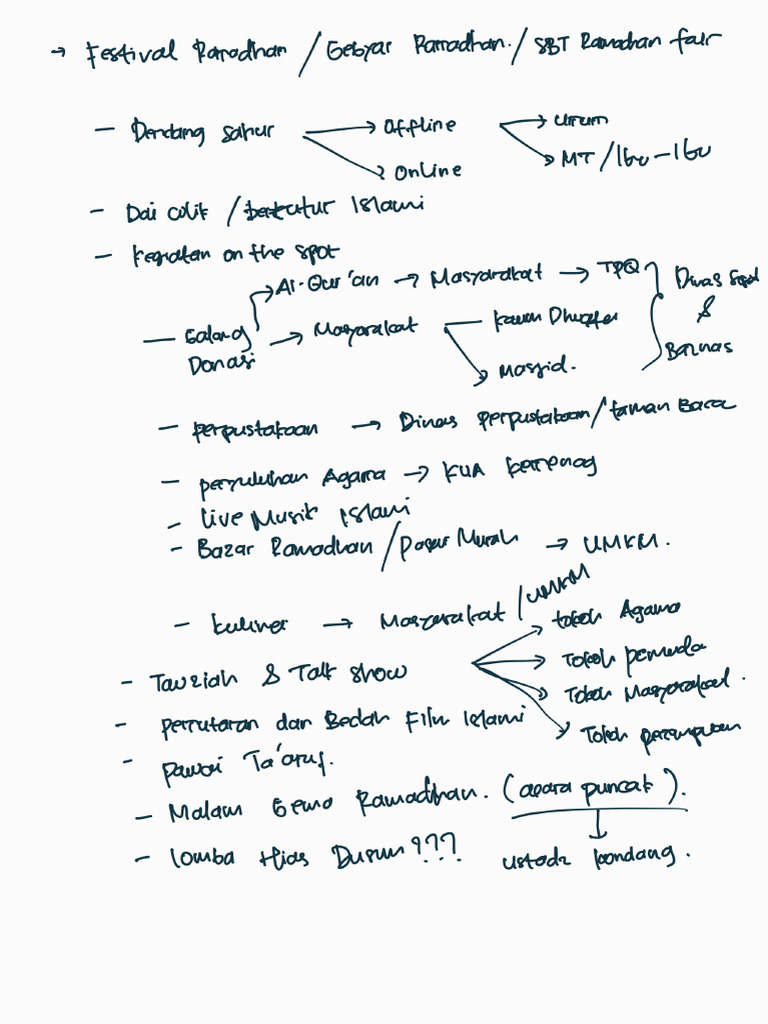 → Festival Ramadhan / Gebyar Ramadhan. / SBT Ramadhan fair
- Dendang sahur → Offline → umum
→ MT / Ibu-Ibu
→ Online
- Dai cilik / Islami
- Kegiatan on the spot
→ Al-Qur'an → Masyarakat → TPQ
- Galang Donasi → Masyarakat → kaum Dhuafa
→ Masjid.
Dinas Sosial & Baznas
- perpustakaan → Dinas perpustakaan / taman Baca
- penyuluhan Agama → KUA kemenag
- Live Musik Islami
- Bazar Ramadhan / pasar Murah → UMKM.
- kuliner → Masyarakat / UMKM
- Tauziah & Talk show → tokoh Agama
→ Tokoh pemuda
→ Tokoh Masyarakat.
→ Tokoh perempuan
- pemutaran dan Bedah Film Islami
- pawai Ta'aruf.
- Malam Gema Ramadhan. (acara puncak).
↓ ustadz kondang.
- lomba Hias Dusun???